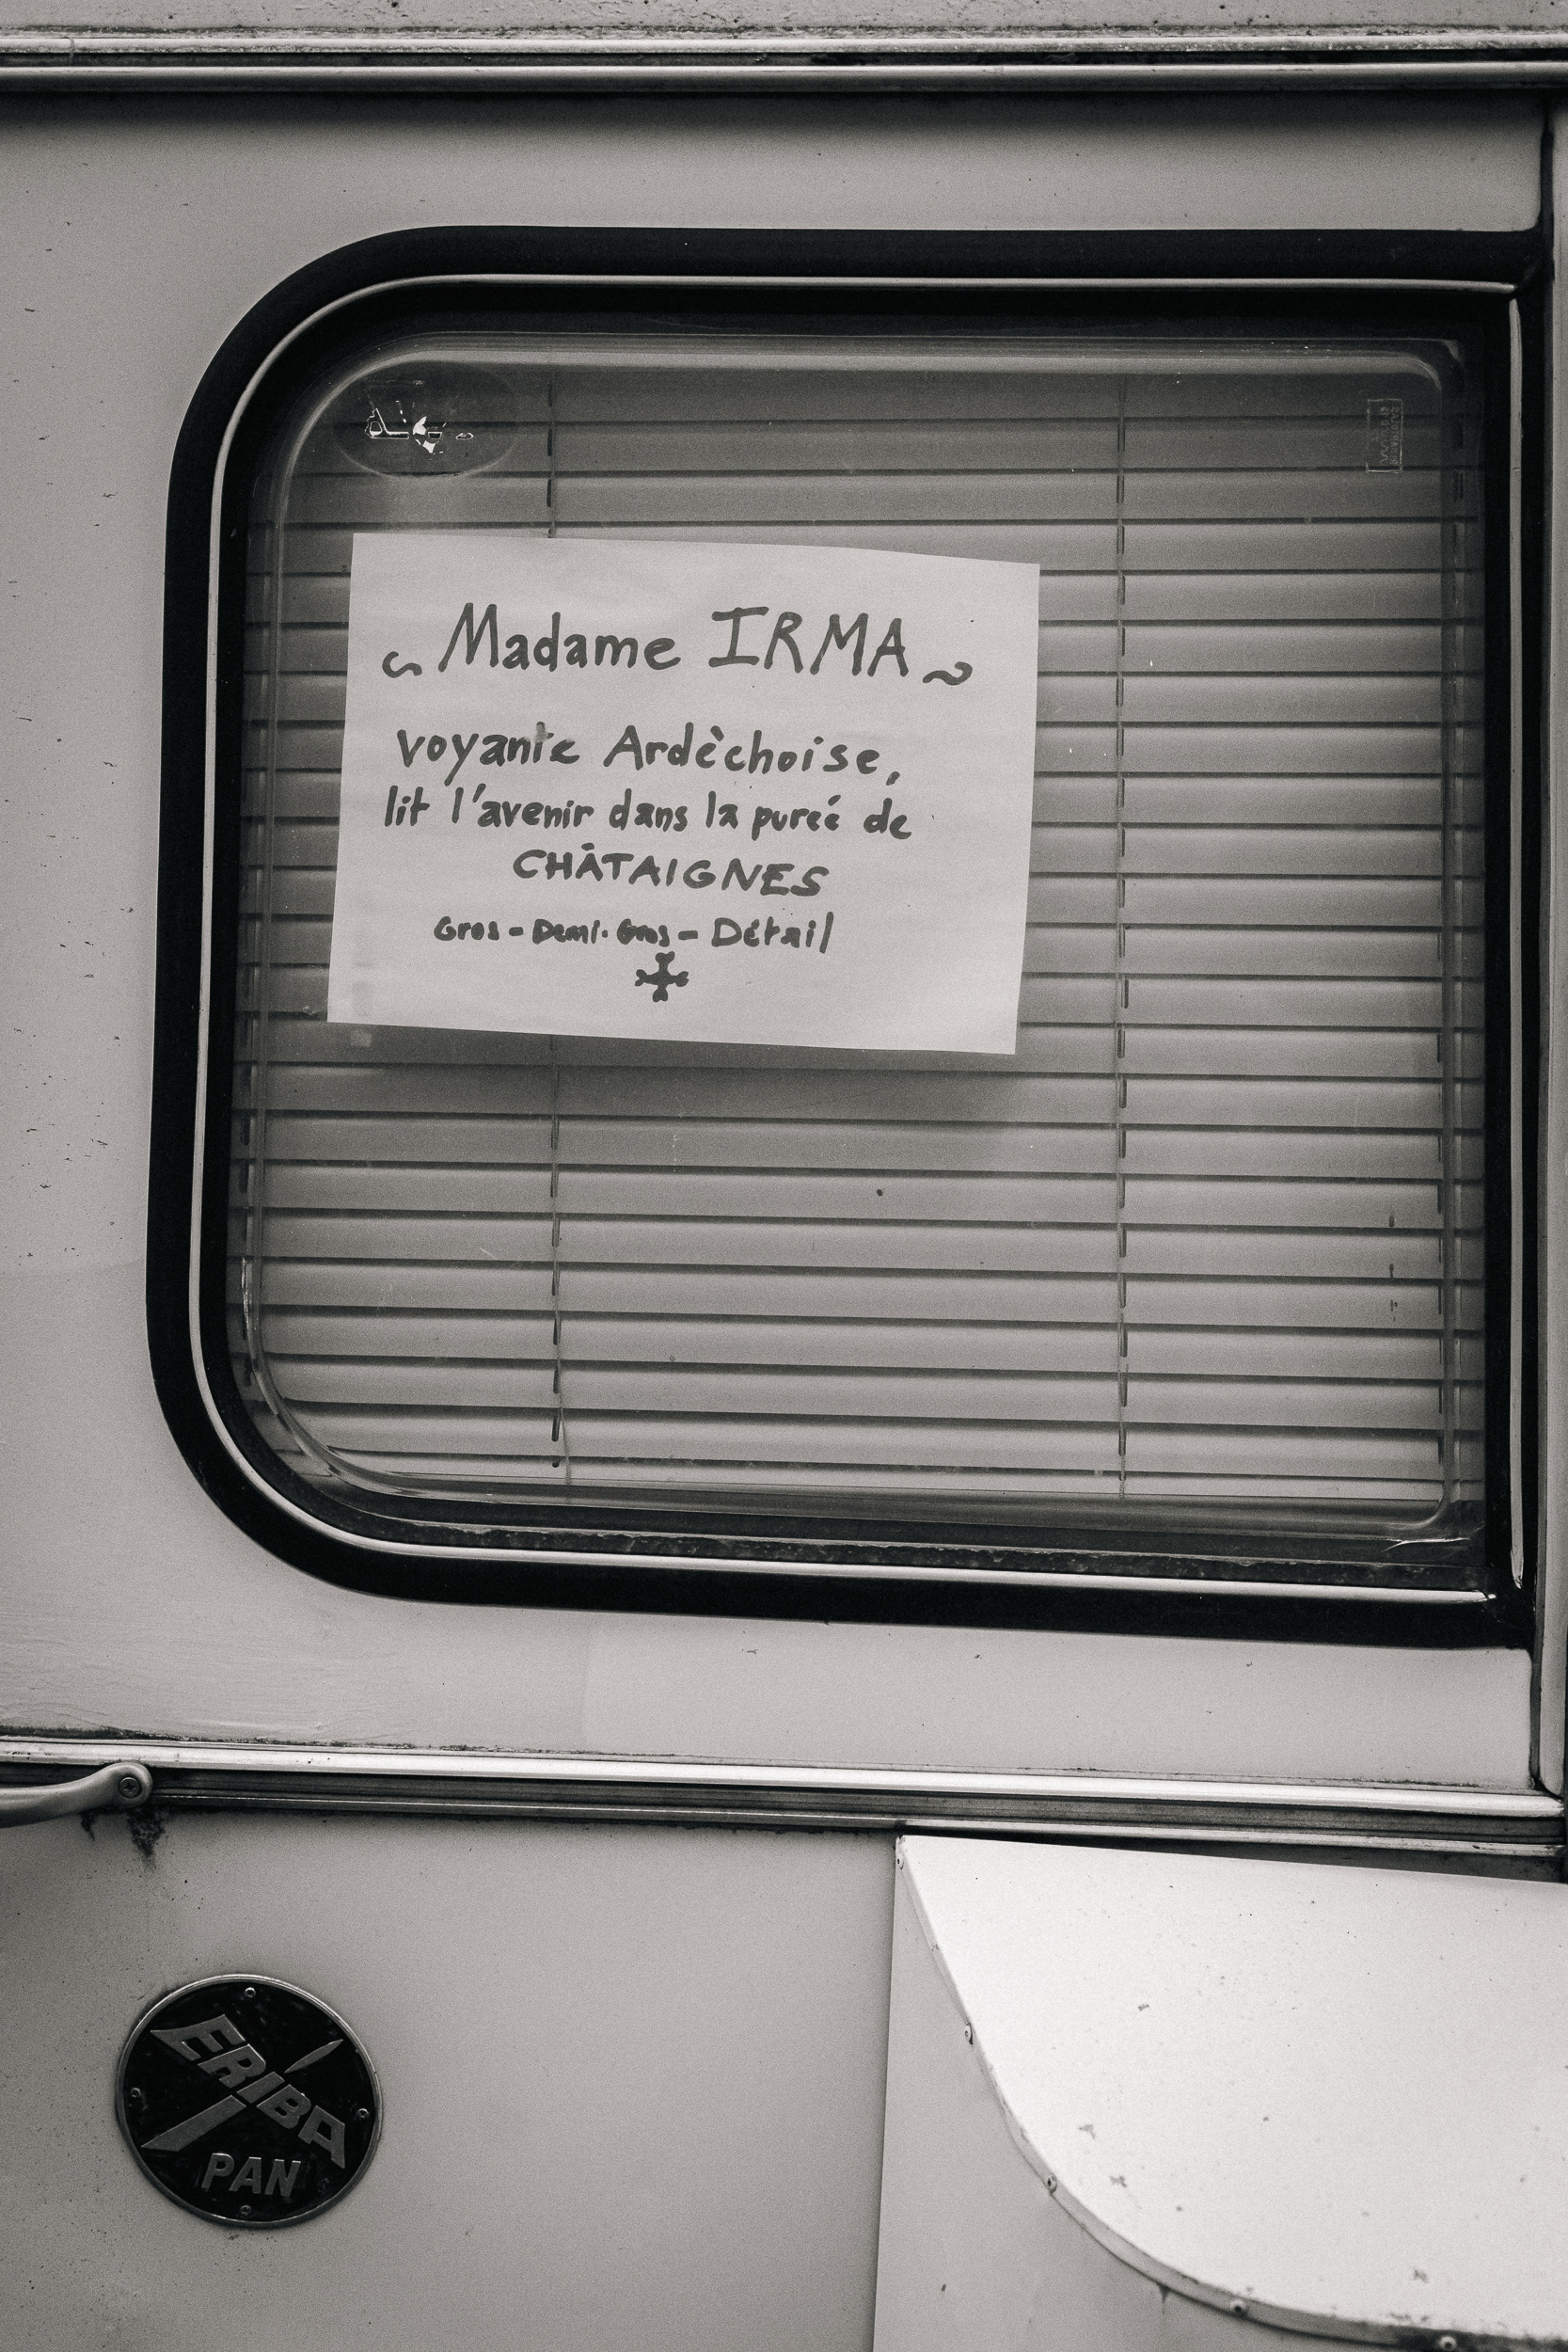 Madame IRMA
voyante Ardèchoise,
lit l'avenir dans la purèé de
CHÂTAIGNES
Gros - Demi-Gros - Détail
ERIBA
PAN